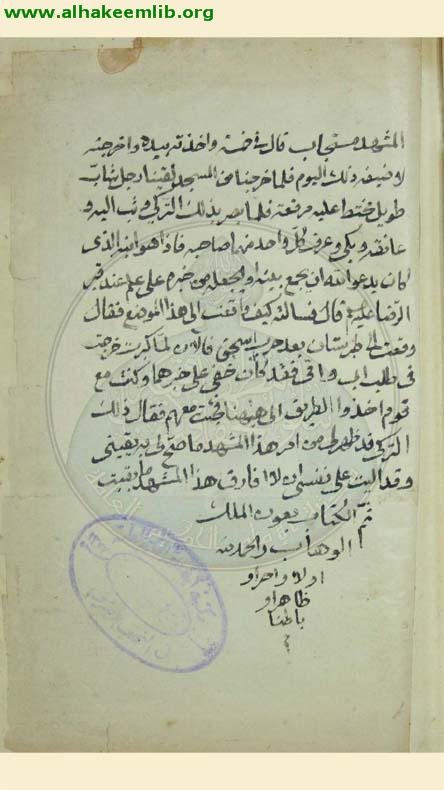 www.alhakeemlib.org
المشهد مستجاب قال فرحمته واخذت بيده واخرجته
لاضيفه ذلك اليوم فلما خرجنا من المسجد لقينا رجل شاب
طويل مختط عليه مرقعة فلما بصر بذلك التركي وثب اليه و
عانقه وبكى وعرف كل واحد منهما صاحبه فاذا هو ابنه الذي
كان يدعو الله ان يجمع بينه او يجعله من خبره على علم عند قبر
الرضا عليه قال فسالته كيف وقعت الى هذا الموضع فقال
وقعت الى طبرستان بعد حرب اسحق فالان لما كبرت خرجت
في طلب ابي وامي فقد كان خفي علي خبرهما وكنت مع
قوم اخذوا الطريق الى هيهنا فجئت معهم فقال ذلك
التركي قد ظهر لي من امر هذا المشهد ما صح لي به يقيني
وقد اليت على نفسي ان لا افارق هذا المشهد ما بقيت
تم الكتاب بعون الملك
الوهاب والحمد لله
اولا واخرا و
ظاهرا و
باطنا